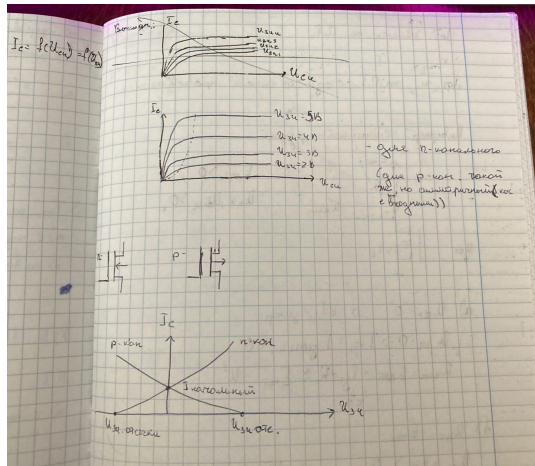 Выходн.:
I_c = f(U_си) = f(U_зи)
I_c
U_зи4
U_зи3
U_зи2
U_зи1
U_си
I_c
U_зи=5В
U_зи=4В
U_зи=3В
U_зи=2В
U_си
- для n-канального
(для р-кан. такой
же, но симметричный (как
с входными))
n-
p-
I_c
р-кан
n-кан
I начальный
U_зи отсечки
U_зи отс.
U_зи